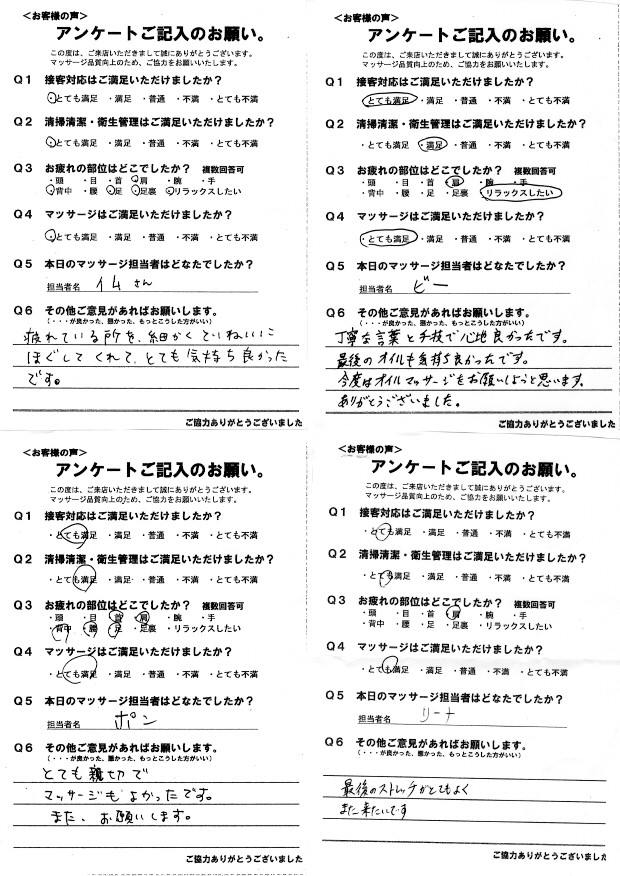 <お客様の声>
アンケートご記入のお願い。
この度は、ご来店いただきまして誠にありがとうございます。
マッサージ品質向上のため、ご協力をお願いいたします。
Q1 接客対応はご満足いただけましたか?
・とても満足 ・満足 ・普通 ・不満 ・とても不満
Q2 清掃清潔・衛生管理はご満足いただけましたか?
・とても満足 ・満足 ・普通 ・不満 ・とても不満
Q3 お疲れの部位はどこでしたか? 複数回答可
・頭 ・目 ・首 ・肩 ・腕 ・手
・背中 ・腰 ・足 ・足裏 ・リラックスしたい
Q4 マッサージはご満足いただけましたか?
・とても満足 ・満足 ・普通 ・不満 ・とても不満
Q5 本日のマッサージ担当者はどなたでしたか?
担当者名 イムさん
Q6 その他ご意見があればお願いします。
(・・・が良かった、悪かった、もっとこうした方がいい)
疲れている所を、細かくていねいに
ほぐしてくれて、とても気持ち良かった
です。
ご協力ありがとうございました
<お客様の声>
アンケートご記入のお願い。
この度は、ご来店いただきまして誠にありがとうございます。
マッサージ品質向上のため、ご協力をお願いいたします。
Q1 接客対応はご満足いただけましたか?
・とても満足 ・満足 ・普通 ・不満 ・とても不満
Q2 清掃清潔・衛生管理はご満足いただけましたか?
・とても満足 ・満足 ・普通 ・不満 ・とても不満
Q3 お疲れの部位はどこでしたか? 複数回答可
・頭 ・目 ・首 ・肩 ・腕 ・手
・背中 ・腰 ・足 ・足裏 リラックスしたい
Q4 マッサージはご満足いただけましたか?
・とても満足 ・満足 ・普通 ・不満 ・とても不満
Q5 本日のマッサージ担当者はどなたでしたか?
担当者名 ビー
Q6 その他ご意見があればお願いします。
(・・・が良かった、悪かった、もっとこうした方がいい)
丁寧な言葉と手技で心地良かったです。
最後のオイルも気持ち良かったです。
今度はオイルマッサージをお願いしようと思います。
ありがとうございました。
ご協力ありがとうございました
<お客様の声>
アンケートご記入のお願い。
この度は、ご来店いただきまして誠にありがとうございます。
マッサージ品質向上のため、ご協力をお願いいたします。
Q1 接客対応はご満足いただけましたか?
・とても満足 ・満足 ・普通 ・不満 ・とても不満
Q2 清掃清潔・衛生管理はご満足いただけましたか?
・とても満足 ・満足 ・普通 ・不満 ・とても不満
Q3 お疲れの部位はどこでしたか? 複数回答可
・頭 ・目 首 ・肩 ・腕 ・手
・背中 ・腰 ・足 ・足裏 ・リラックスしたい
Q4 マッサージはご満足いただけましたか?
・とても満足 ・満足 ・普通 ・不満 ・とても不満
Q5 本日のマッサージ担当者はどなたでしたか?
担当者名 ポン
Q6 その他ご意見があればお願いします。
(・・・が良かった、悪かった、もっとこうした方がいい)
とても親切で
マッサージもよかったです。
また、お願いします。
ご協力ありがとうございました
<お客様の声>
アンケートご記入のお願い。
この度は、ご来店いただきまして誠にありがとうございます。
マッサージ品質向上のため、ご協力をお願いいたします。
Q1 接客対応はご満足いただけましたか?
・とても満足 ・満足 ・普通 ・不満 ・とても不満
Q2 清掃清潔・衛生管理はご満足いただけましたか?
・とても満足 ・満足 ・普通 ・不満 ・とても不満
Q3 お疲れの部位はどこでしたか? 複数回答可
・頭 ・目 ・首 ・肩 ・腕 ・手
・背中 ・腰 ・足 ・足裏 ・リラックスしたい
Q4 マッサージはご満足いただけましたか?
・とても満足 ・満足 ・普通 ・不満 ・とても不満
Q5 本日のマッサージ担当者はどなたでしたか?
担当者名 リーナ
Q6 その他ご意見があればお願いします。
(・・・が良かった、悪かった、もっとこうした方がいい)
最後のストレッチがとてもよく
また来たいです
ご協力ありがとうございました